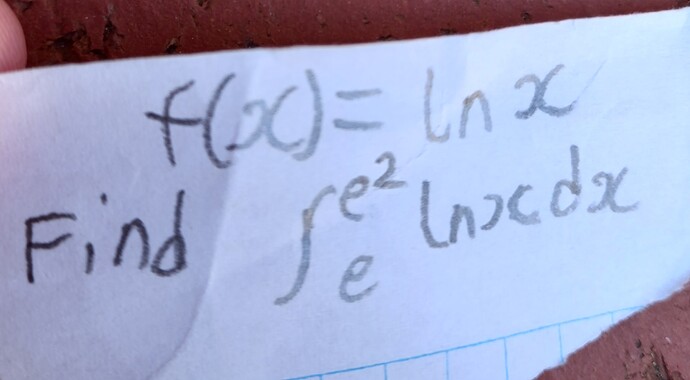 f(x) = ln x
Find ∫_e^{e^2} ln x dx